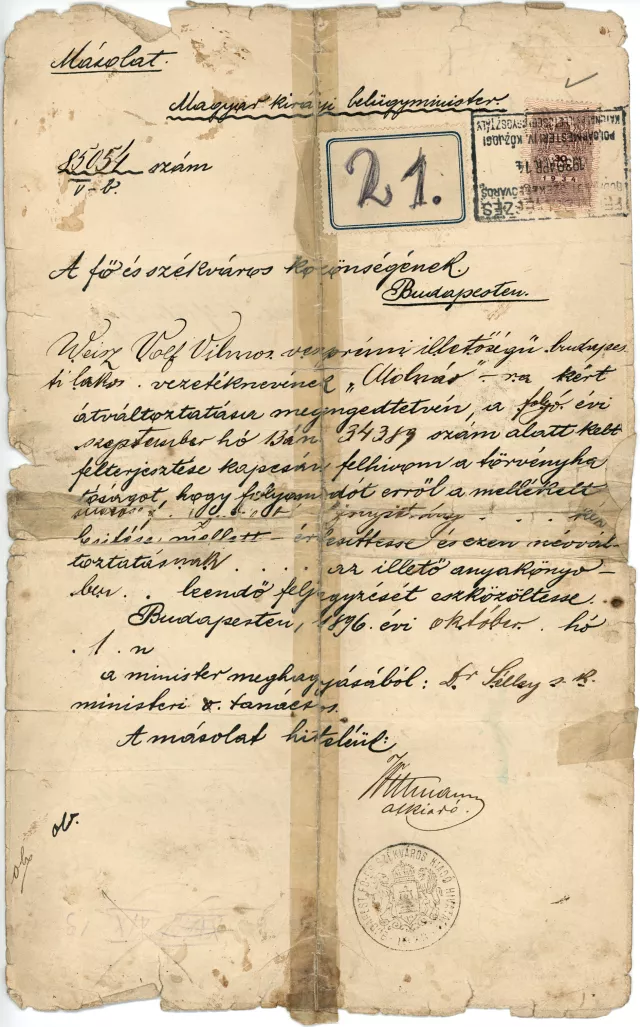 Másolat.
Magyar királyi belügyminister.
85051 szám
V-b.
21.
POLGÁRMESTERI IV. KÖZJOGI
1939 APR 14
A fő és székváros közönségének.
Budapesten.
Weisz Volf Vilmos veszprémi illetőségű budapes
ti lakos . vezetéknevének „Molnár"-ra kért
átváltoztatása megengedtetvén, a folyó évi
szeptember hó 13án 34389 szám alatt kelt
felterjesztése kapcsán, felhívom a törvényha
tóságot, hogy folyamodót erről a mellékelt
mellett értesittesse és ezen névvál-
toztatásnak . . . . az illető anyakönyv-
ben . . leendő feljegyzését eszközöltesse . .
Budapesten, 1896. évi október . hó
. 1 . n
a minister meghagyásából: Dr s. k.
ministeri o. tanácsos.
A másolat hiteléül:
Wittmann
alkiadó.
ov.
BUDAPEST FŐ ÉS SZÉKVÁROS KIADÓ HIVATALA